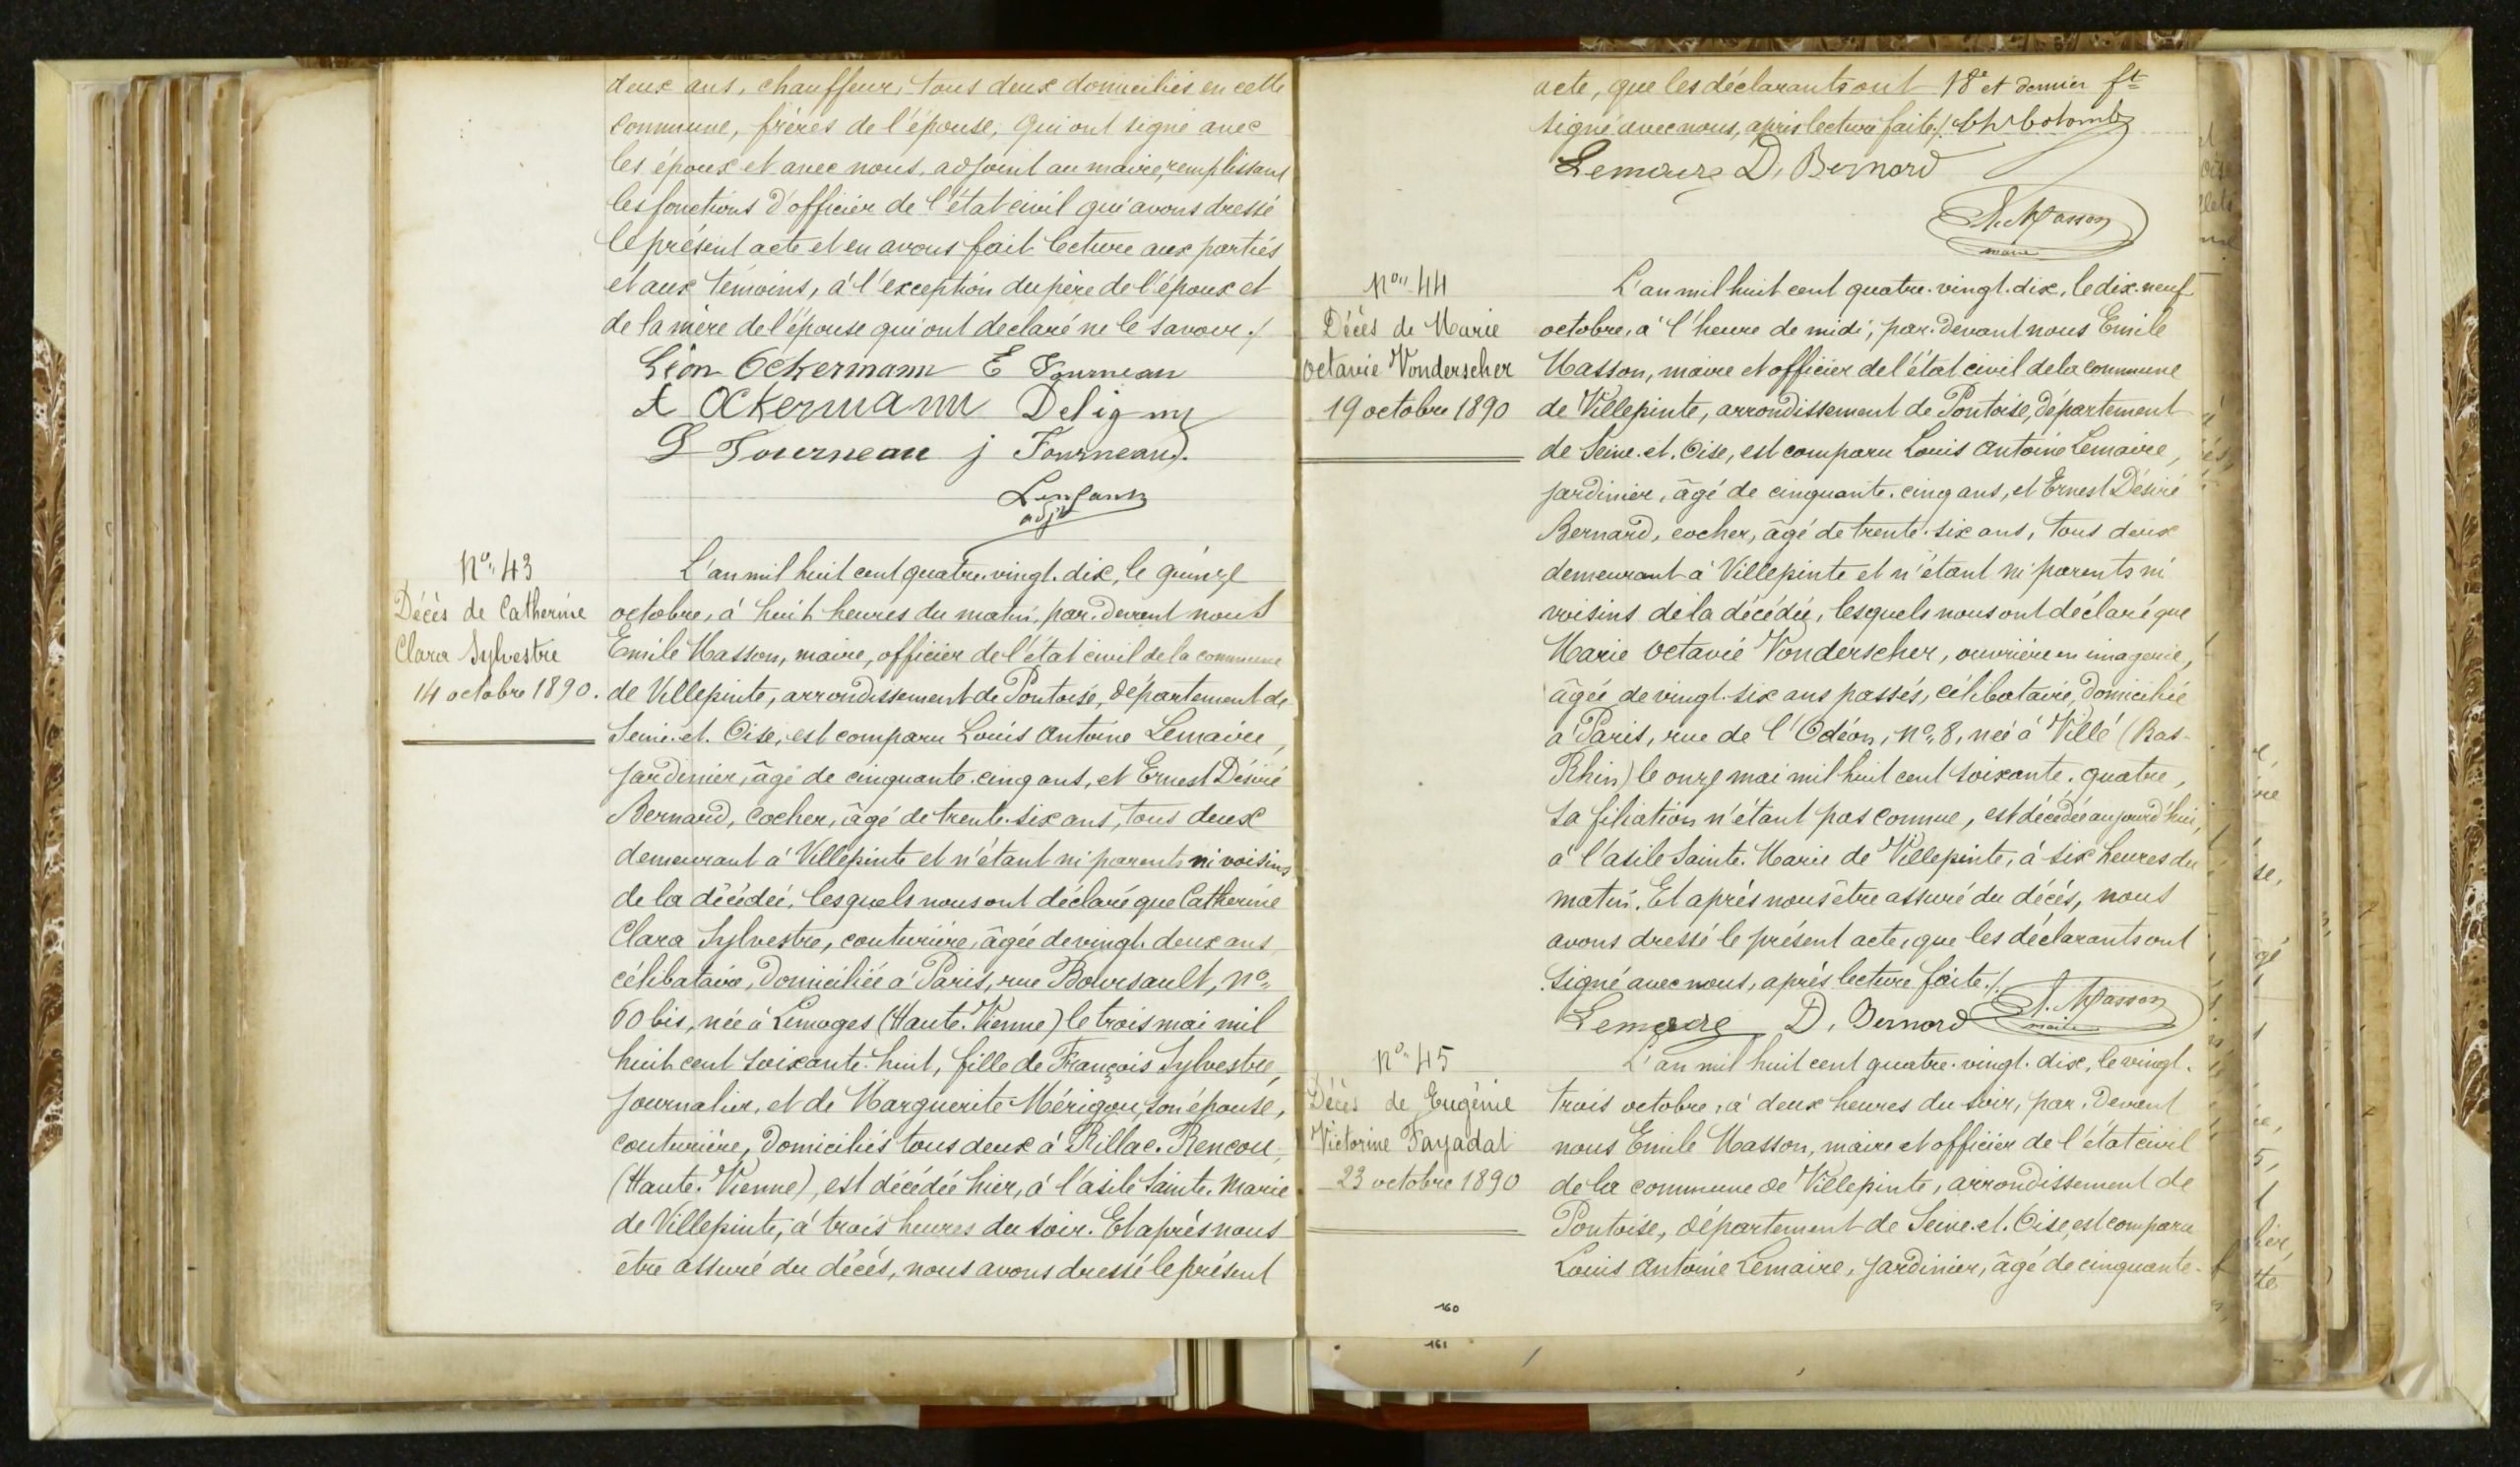 deux ans, chauffeur, tous deux domiciliés en cette
commune, frères de l'épouse, qui ont signé avec
les époux et avec nous, adjoint au maire, remplissant
les fonctions d'officier de l'état civil qui avons dressé
le présent acte et en avons fait lecture aux parties
et aux témoins, à l'exception du père de l'époux et
de la mère de l'épouse qui ont déclaré ne le savoir ./.
Léon Ockermann E Fourneau
A Ockermann Deligny
G Fourneau j Fourneaux
adjt
No. 43
Décès de Catherine
Clara Sylvestre
14 octobre 1890.
L'an mil huit cent quatre-vingt-dix, le quinze
octobre, à huit heures du matin, par-devant nous
Emile Masson, maire, officier de l'état civil de la commune
de Villepinte, arrondissement de Pontoise, département de
Seine-et-Oise, est comparu Louis Antoine Lemaire,
jardinier, âgé de cinquante-cinq ans, et Ernest Désiré
Bernard, cocher, âgé de trente-six ans, tous deux
demeurant à Villepinte et n'étant ni parents ni voisins
de la décédée, lesquels nous ont déclaré que Catherine
Clara Sylvestre, couturière, âgée de vingt-deux ans,
célibataire, domiciliée à Paris, rue Boursault, no
60 bis, née à Limoges (Haute-Vienne) le trois mai mil
huit cent soixante-huit, fille de François Sylvestre,
journalier, et de Marguerite Mérigou, son épouse,
couturière, domiciliés tous deux à Rillac-Rencou,
(Haute-Vienne), est décédée hier, à l'asile Sainte-Marie
de Villepinte, à trois heures du soir. Et après nous
être assuré du décès, nous avons dressé le présent
acte, que les déclarants ont 18e et dernier ft
signé avec nous, après lecture faite ./.
Lemaire D. Bernard
A. Masson
maire
No. 44
Décès de Marie
Octavie Vonderscher
19 octobre 1890
L'an mil huit cent quatre-vingt-dix, le dix-neuf
octobre, à l'heure de midi, par-devant nous Emile
Masson, maire et officier de l'état civil de la commune
de Villepinte, arrondissement de Pontoise, département
de Seine-et-Oise, est comparu Louis Antoine Lemaire,
jardinier, âgé de cinquante-cinq ans, et Ernest Désiré
Bernard, cocher, âgé de trente-six ans, tous deux
demeurant à Villepinte et n'étant ni parents ni
voisins de la décédée, lesquels nous ont déclaré que
Marie Octavie Vonderscher, ouvrière en imagerie,
âgée de vingt-six ans passés, célibataire, domiciliée
à Paris, rue de l'Odéon, no 8, née à Villé (Bas-
Rhin) le onze mai mil huit cent soixante-quatre,
sa filiation n'étant pas connue, est décédée aujourd'hui,
à l'asile Sainte-Marie de Villepinte, à six heures du
matin. Et après nous être assuré du décès, nous
avons dressé le présent acte, que les déclarants ont
signé avec nous, après lecture faite ./.
Lemaire D. Bernard A. Masson
maire
No. 45
Décès de Eugénie
Victorine Fayadat
23 octobre 1890
L'an mil huit cent quatre-vingt-dix, le vingt-
trois octobre, à deux heures du soir, par-devant
nous Emile Masson, maire et officier de l'état civil
de la commune de Villepinte, arrondissement de
Pontoise, département de Seine-et-Oise, est comparu
Louis Antoine Lemaire, jardinier, âgé de cinquante-
160
161